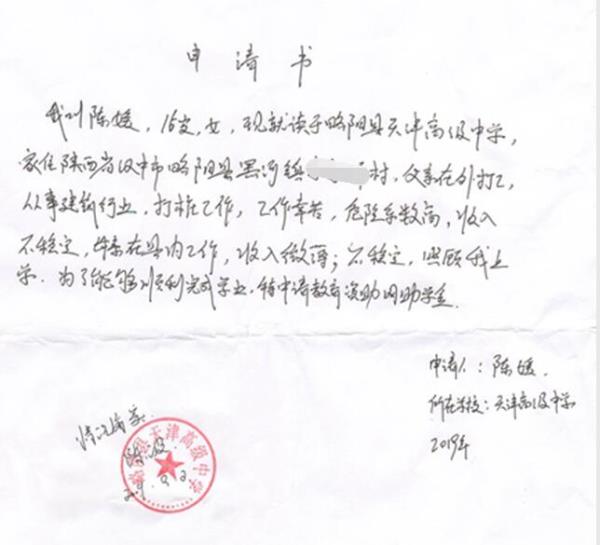 申请书
我叫陈媛，16岁，女，现就读于略阳县天津高级中学，
家住陕西省汉中市略阳县黑河镇村，父亲在外打工，
从事建筑行业，打桩工作，工作幸苦，危险系数高，收入
不稳定，母亲在县内工作，收入微薄；不稳定，照顾我上
学．为了能够顺利完成学业，特申请教育资助网助学金．
申请人：陈媛．
所在学校：天津高级中学
2019年
情况属实
天津高级中学